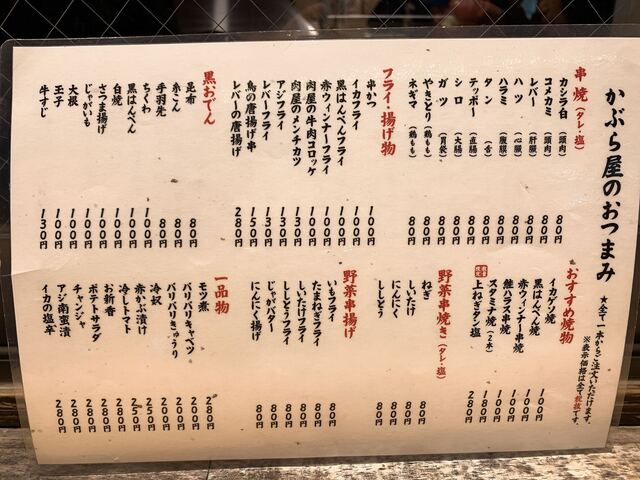 かぶら屋のおつまみ
★全て一本からご注文いただけます。
※表示価格は全て税抜です。
串焼（タレ・塩）
カシラ白（頭肉）80円
コメカミ（頭肉）80円
レバー（肝臓）80円
ハツ（心臓）80円
ハラミ（腹膜）80円
タン（舌）80円
テッポー（直腸）80円
シロ（大腸）80円
ガツ（胃袋）80円
やきとり（鶏もも）80円
ネギマ（鶏もも）80円
フライ・揚げ物
串かつ 100円
イカフライ 100円
黒はんぺんフライ 100円
赤ウィンナーフライ 100円
肉屋の牛肉コロッケ 100円
肉屋のメンチカツ 130円
アジフライ 130円
レバーフライ 130円
鳥の唐揚げ串 150円
レバーの唐揚げ 280円
黒おでん
昆布 80円
糸こん 80円
手羽先 80円
ちくわ 100円
黒はんぺん 100円
白焼 100円
さつま揚げ 100円
じゃがいも 100円
大根 100円
玉子 100円
牛すじ 130円
おすすめ焼物
イカゲソ焼 100円
黒はんぺん焼 100円
赤ウィンナー串焼 100円
鮭ハラス串焼 100円
スタミナ焼（2本）180円
上ねぎタン塩 280円
野菜串焼き（タレ・塩）
ねぎ 80円
しいたけ 80円
にんにく 80円
ししとう 80円
野菜串揚げ
いもフライ 80円
たまねぎフライ 80円
しいたけフライ 80円
ししとうフライ 80円
じゃがバター 80円
にんにく揚げ 80円
一品物
モツ煮 280円
バリバリキャベツ 200円
バリバリきゅうり 200円
冷奴 200円
赤かぶ漬け 250円
冷しトマト 250円
お新香 280円
ポテトサラダ 280円
チャンジャ 280円
アジ南蛮漬 280円
イカの塩辛 280円